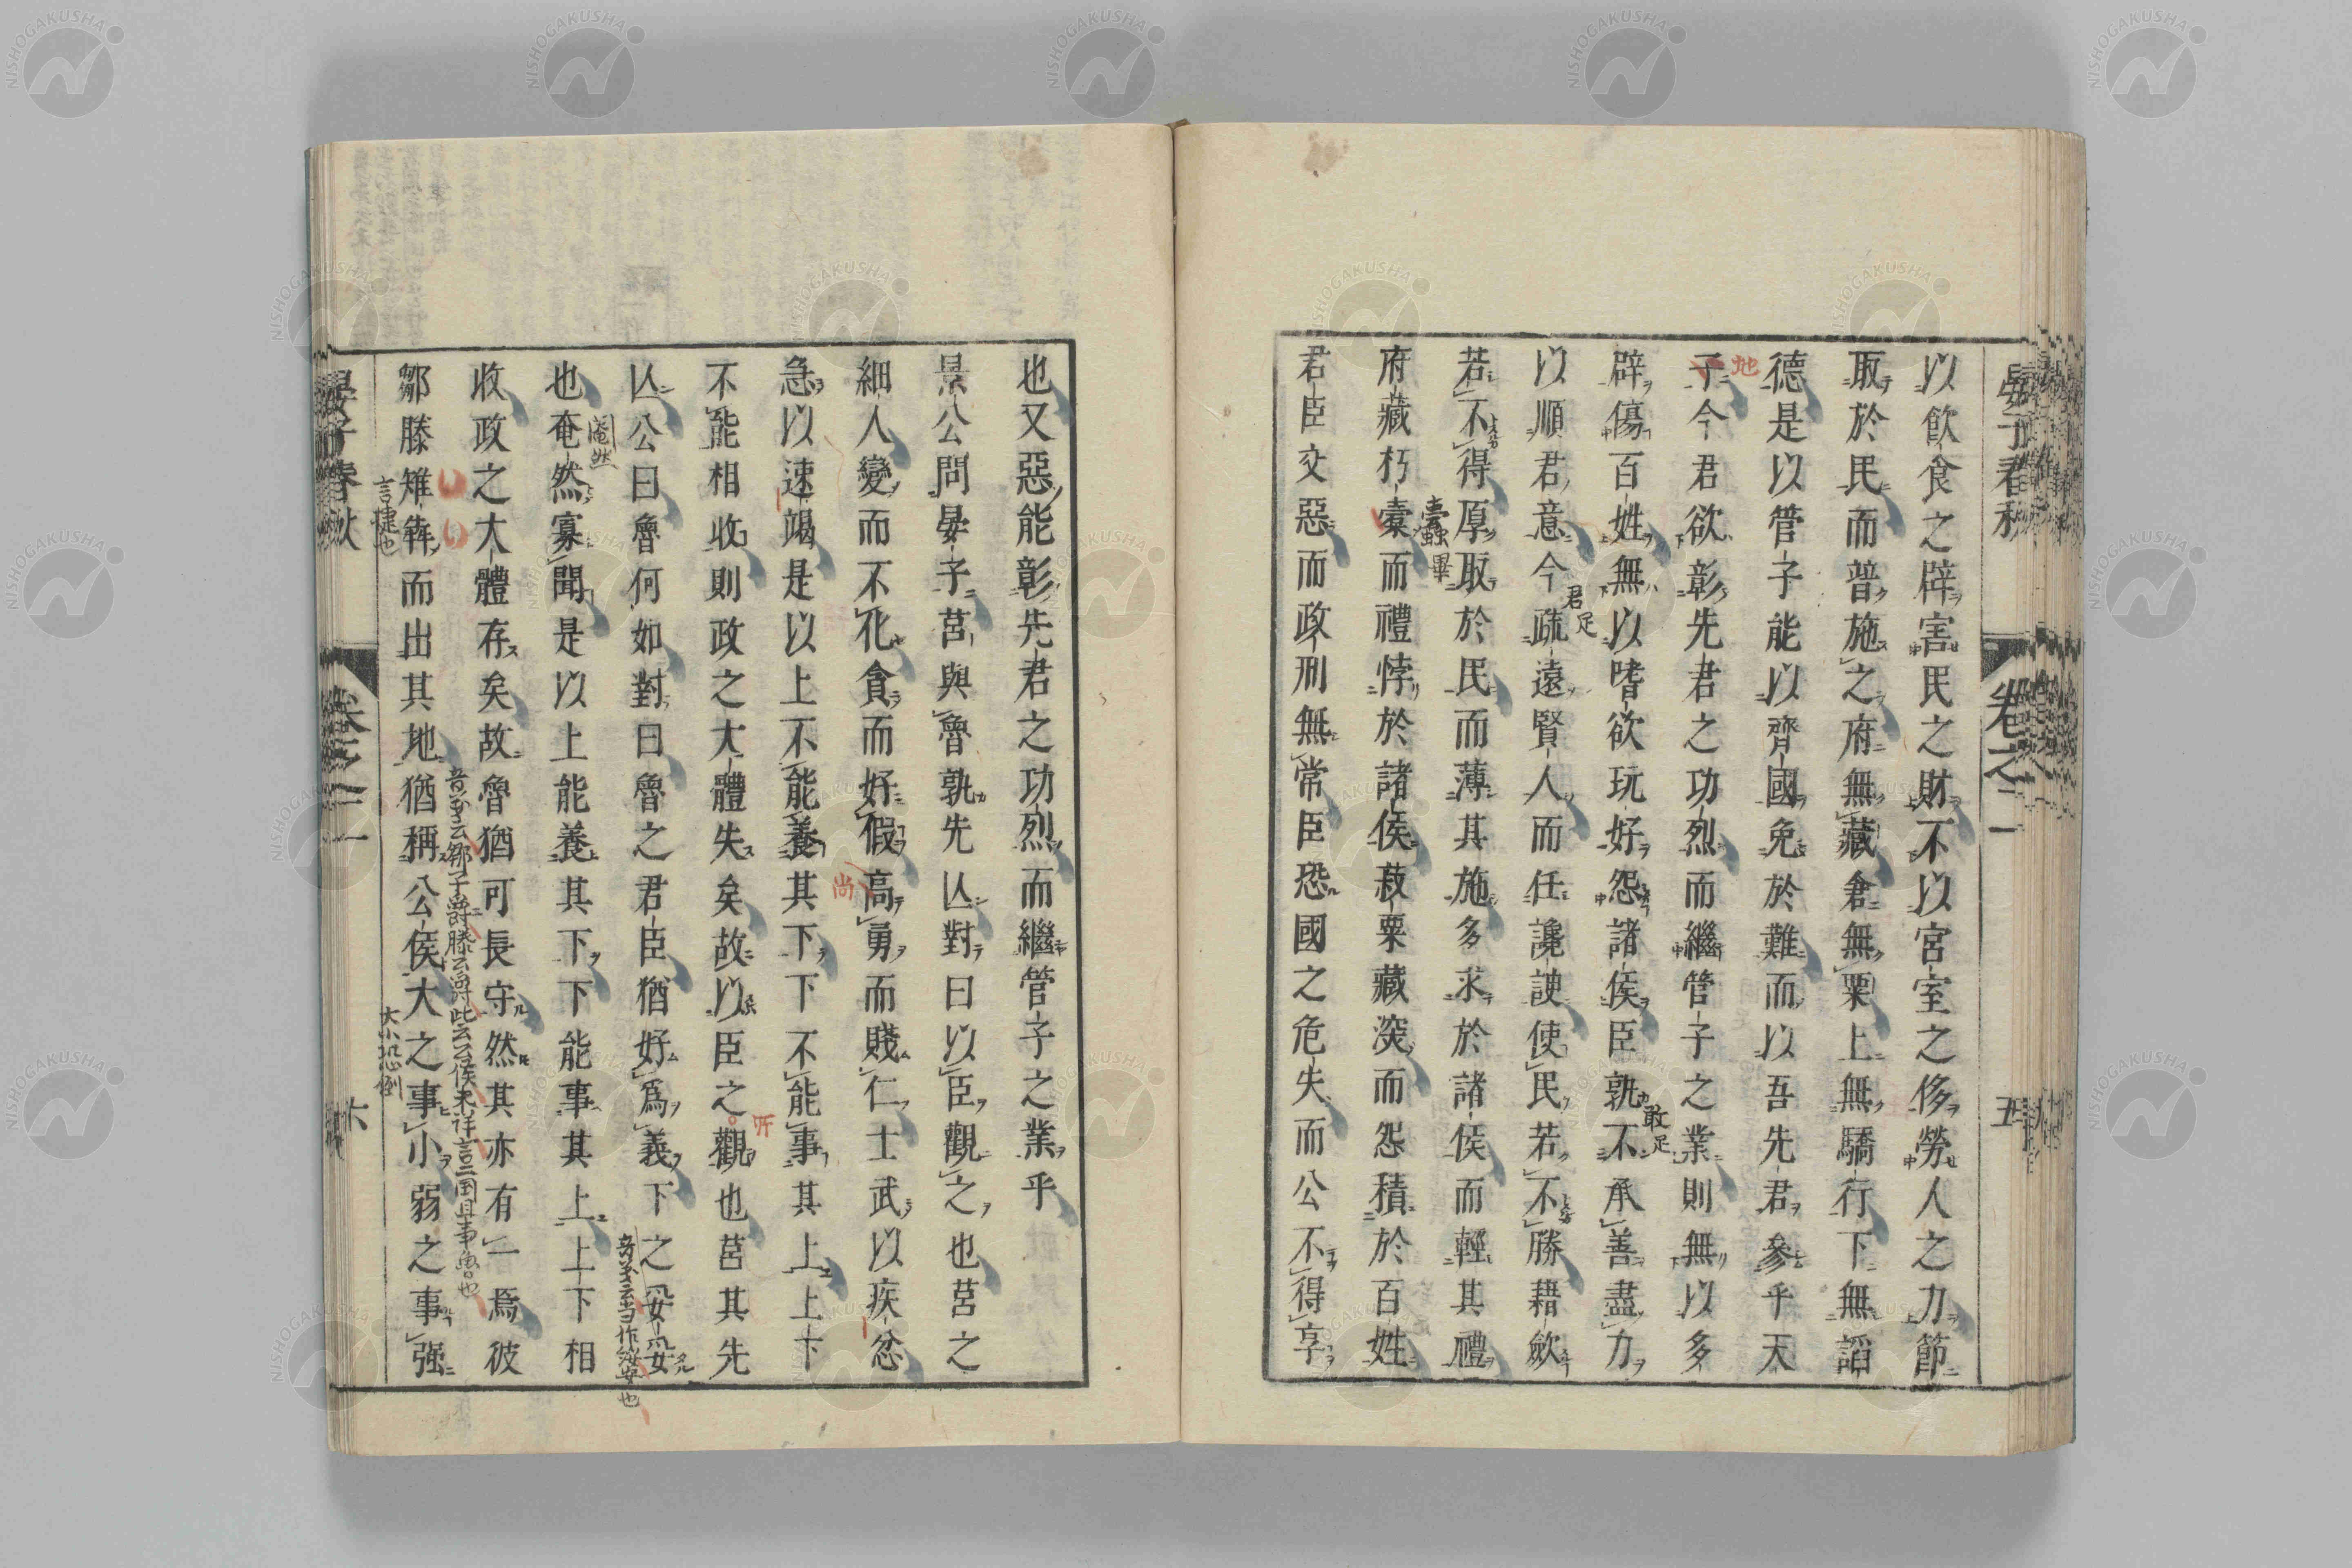 晏子春秋 卷之二 五
以飲食之辟害民之財不以宮室之侈勞人之力節
取於民而普施之府無藏倉無粟上無驕行下無諂
德是以管子能以齊國免於難而以吾先君參乎天
子今君欲彰先君之功烈而繼管子之業則無以多
辟傷百姓無以嗜欲玩好怨諸侯臣孰不承善盡力
以順君意今疏遠賢人而任讒諛使民若不勝藉歛
若不得厚取於民而薄其施多求於諸侯而輕其禮
府藏朽蠹而禮悖於諸侯菽粟藏深而怨積於百姓
君臣交惡而政刑無常臣恐國之危失而公不得享
也又惡能彰先君之功烈而繼管子之業乎
景公問晏子莒與魯孰先亾對曰以臣觀之也莒之
細人變而不化貪而好假高勇而賤仁士武以疾忿
急以速竭是以上不能養其下下不能事其上上下
不能相收則政之大體失矣故以臣之觀也莒其先
亾公曰魯何如對曰魯之君臣猶好爲義下之妥妥
也奄然寡聞是以上能養其下下能事其上上下相
收政之大體存矣故魯猶可長守然其亦有一焉彼
鄒滕雉犇而出其地猶稱公侯大之事小弱之事强
晏子春秋 卷之二 六
地
君足
敢足
尚
所
大小恐倒
NISHOGAKUSHA